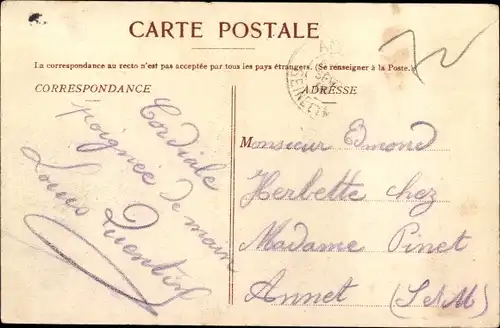 CARTE POSTALE
La correspondance au recto n'est pas acceptée par tous les pays étrangers. (Se renseigner à la Poste.)
CORRESPONDANCE
Cordiale
poignée
de main
Louis Quentin
ADRESSE
Monsieur Edmond
Herbette chez
Madame Pinet
Annet (S&M)